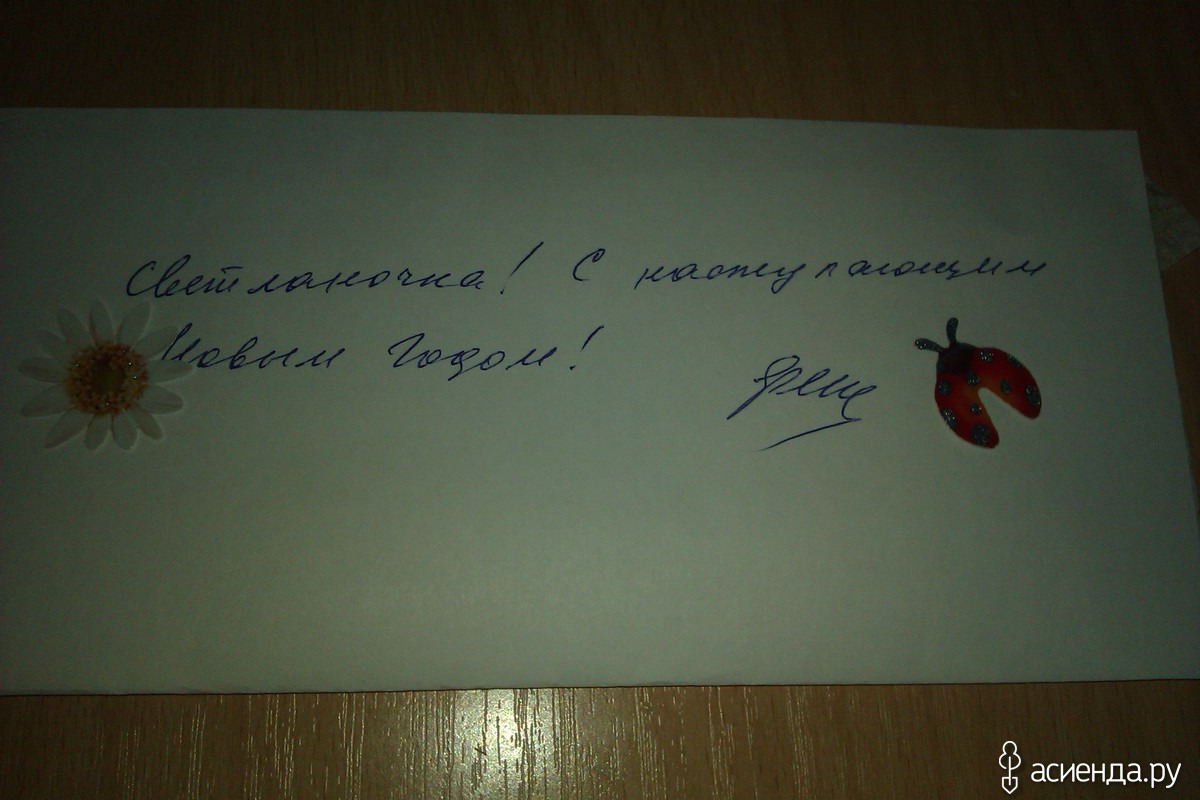 Светланочка! С наступающим
Новым годом!
асиенда.ру